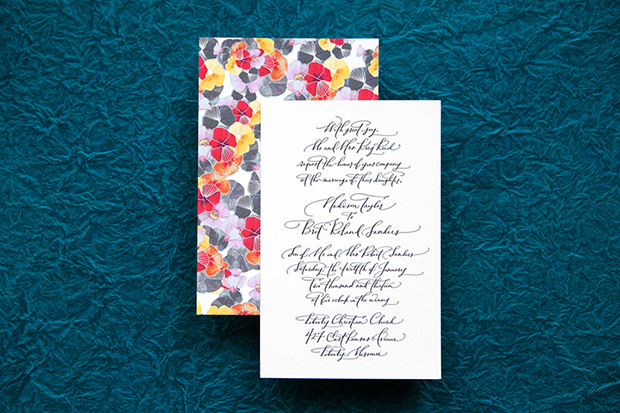 With great joy
Mr. and Mrs. Reid
request the honor of your company
at the marriage of their daughter,
Madison Taylor
to
Bret Roland Sanders
Son of Mr. and Mrs. Robert Sanders
Saturday, the twelfth of January
Two thousand and thirteen
at five o'clock in the evening
Liberty Christian Church
427 East Avenue
Liberty, Missouri